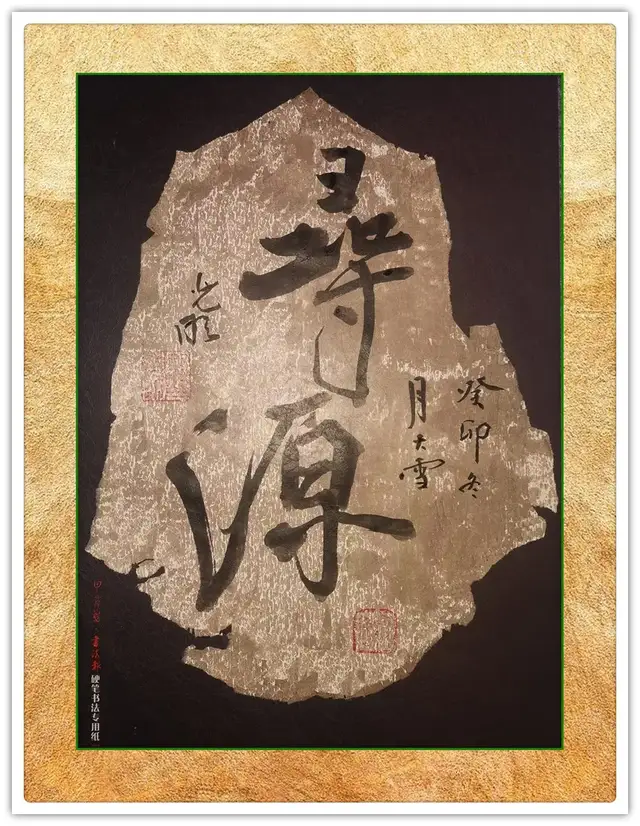 癸卯冬
月大雪
尋源
光明
書法報 硬笔书法专用纸